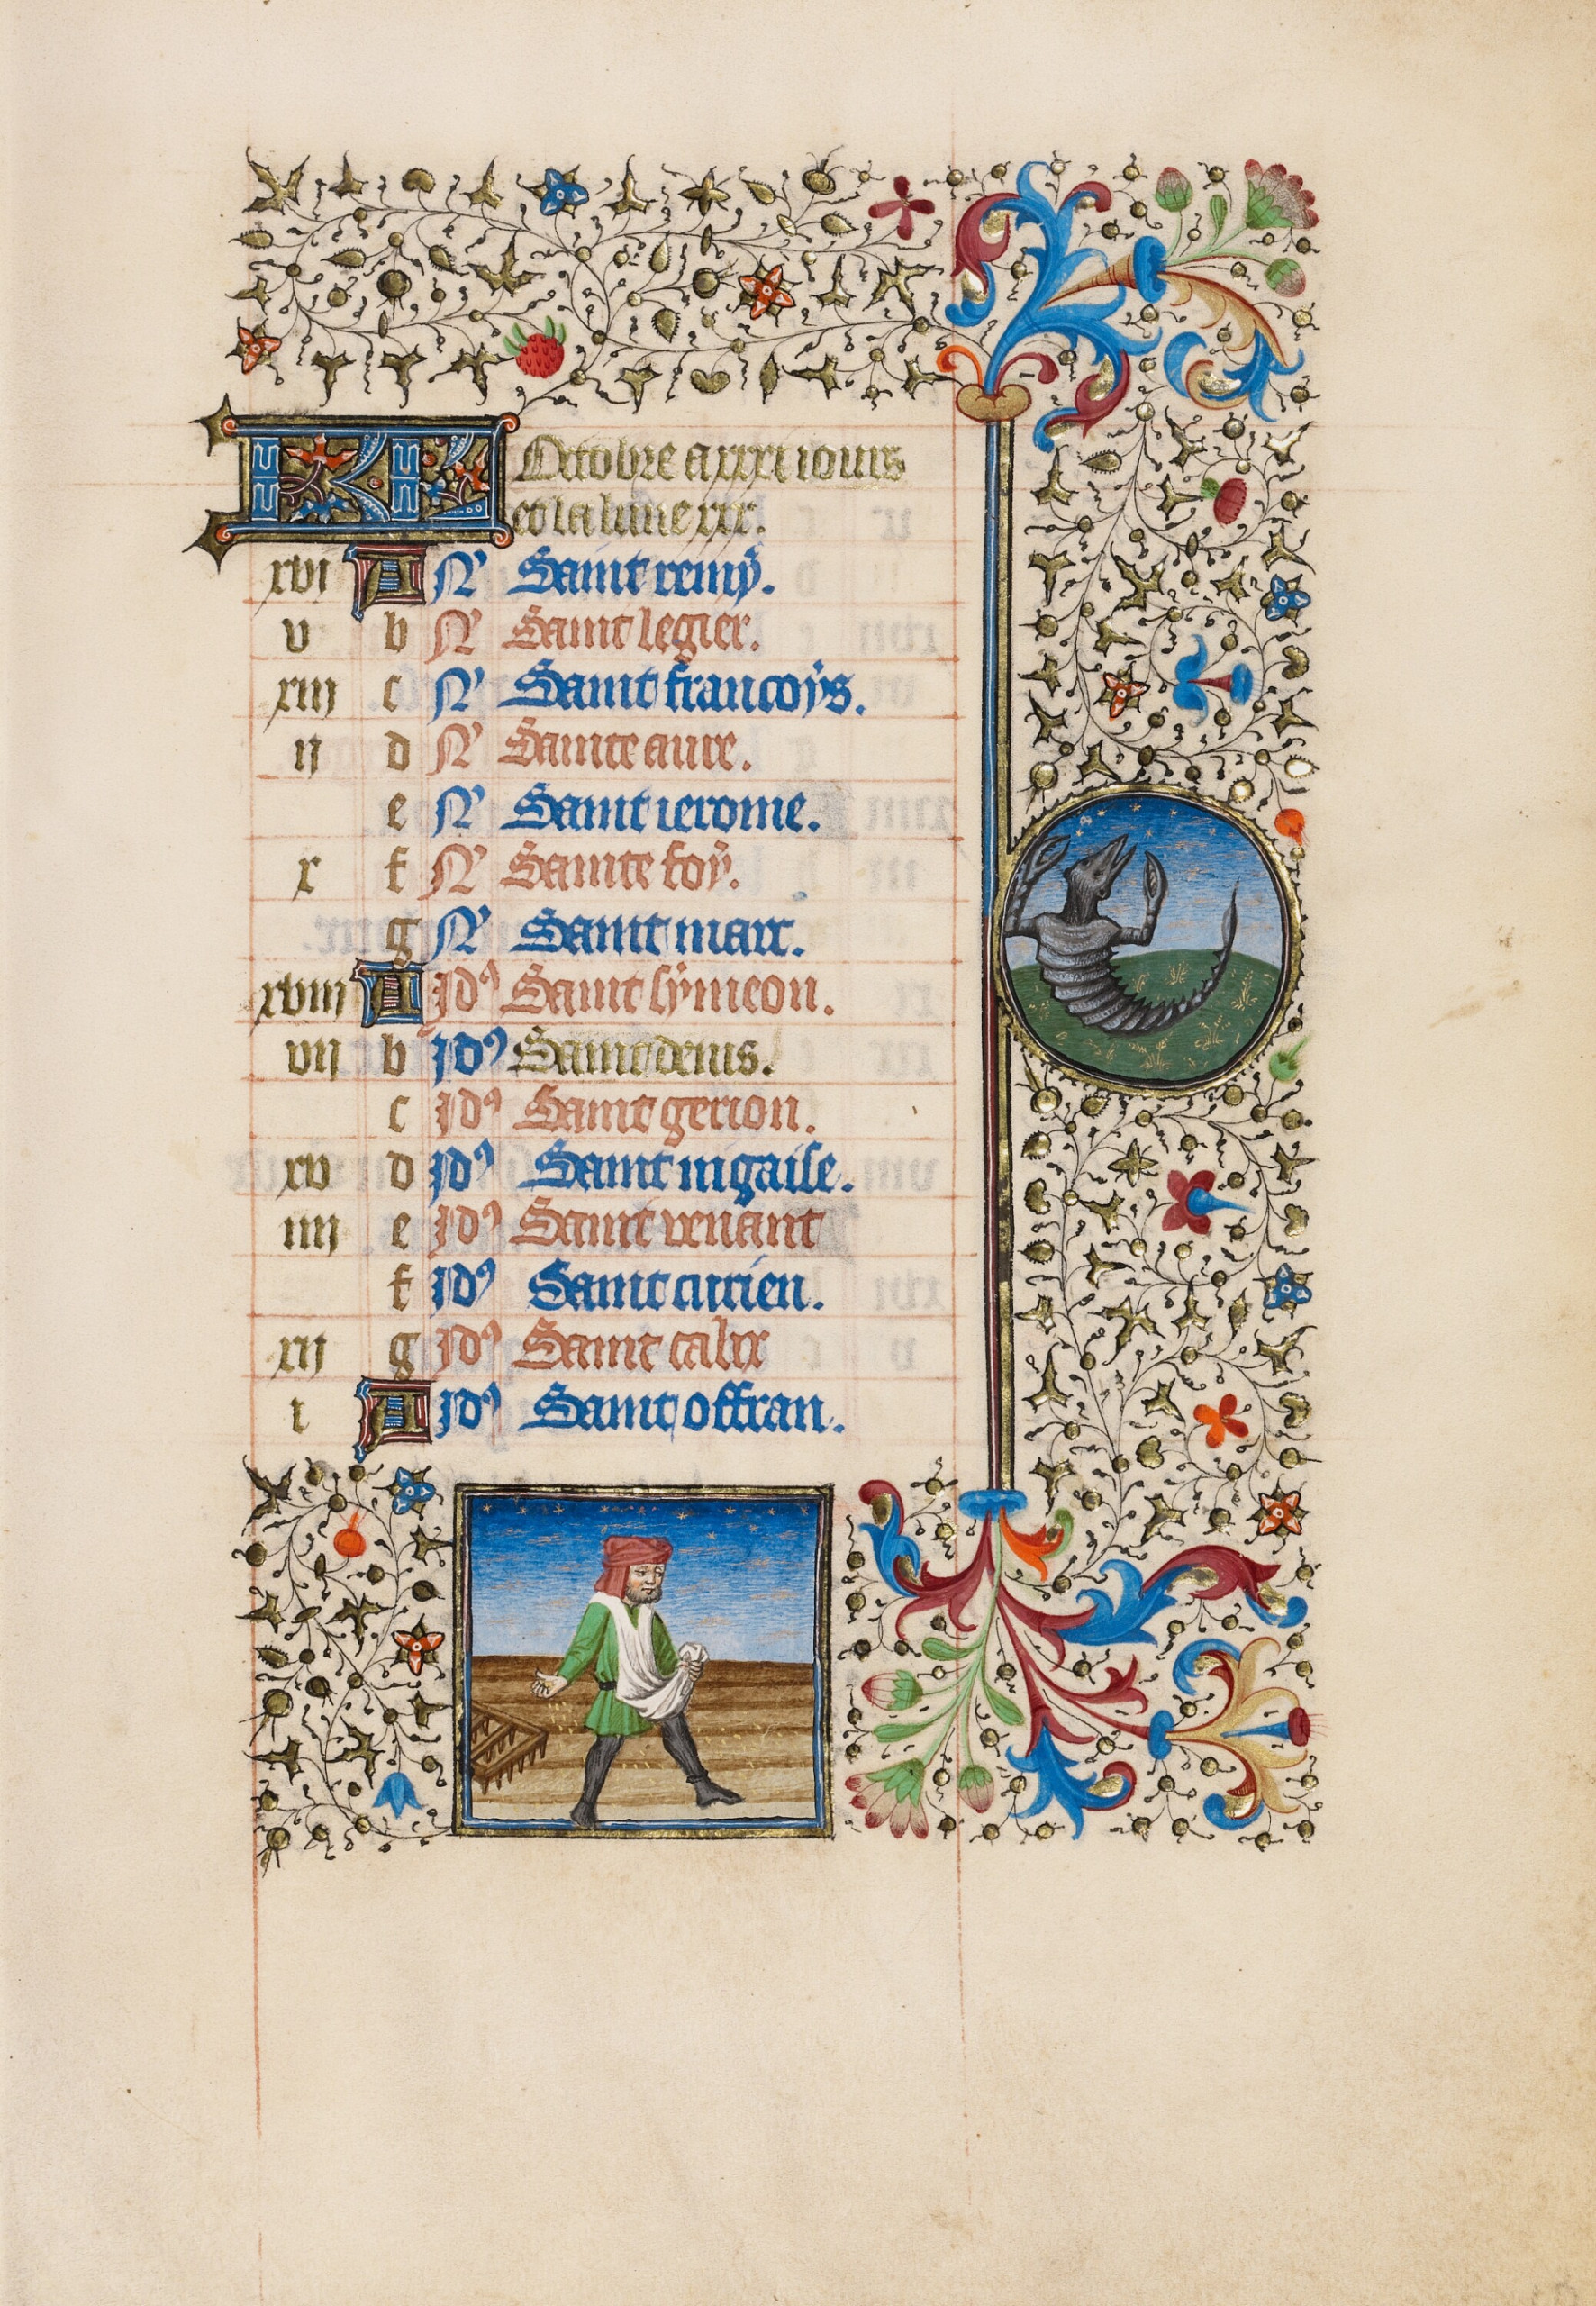 KL Octobre a xxxi iours
et la lune xxx.
xvi A N' Saint remy.
v b N' Saint legier.
xiii c N' Saint francoys.
ii d N' Sainte aure.
e N' Saint ierome.
x f N' Sainte foy.
g N' Saint marc.
xviii A Id9 Saint symeon.
vii b Id9 Saint denis.
c Id9 Saint gerion.
xv d Id9 Saint nigaise.
iiii e Id9 Saint venant
f Id9 Saint
xii g Id9 Saint calix
i A Id9 Saint offran.